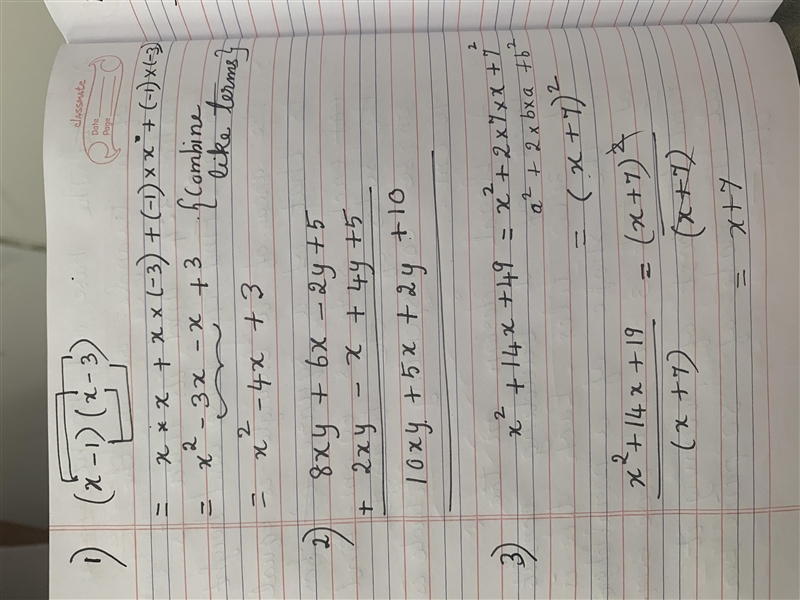 classmate
Date
Page
1) (x-1)(x-3)
= x * x + x × (-3) + (-1) × x + (-1) × (-3)
= x² - 3x - x + 3 {Combine
like terms}
= x² - 4x + 3
2) 8xy + 6x - 2y + 5
+ 2xy - x + 4y + 5
10xy + 5x + 2y + 10
3) x² + 14x + 49 = x² + 2×7×x + 7²
a² + 2×b×a + b²
= (x+7)²
x² + 14x + 19 = (x+7)²
(x+7) (x+7)
= x+7